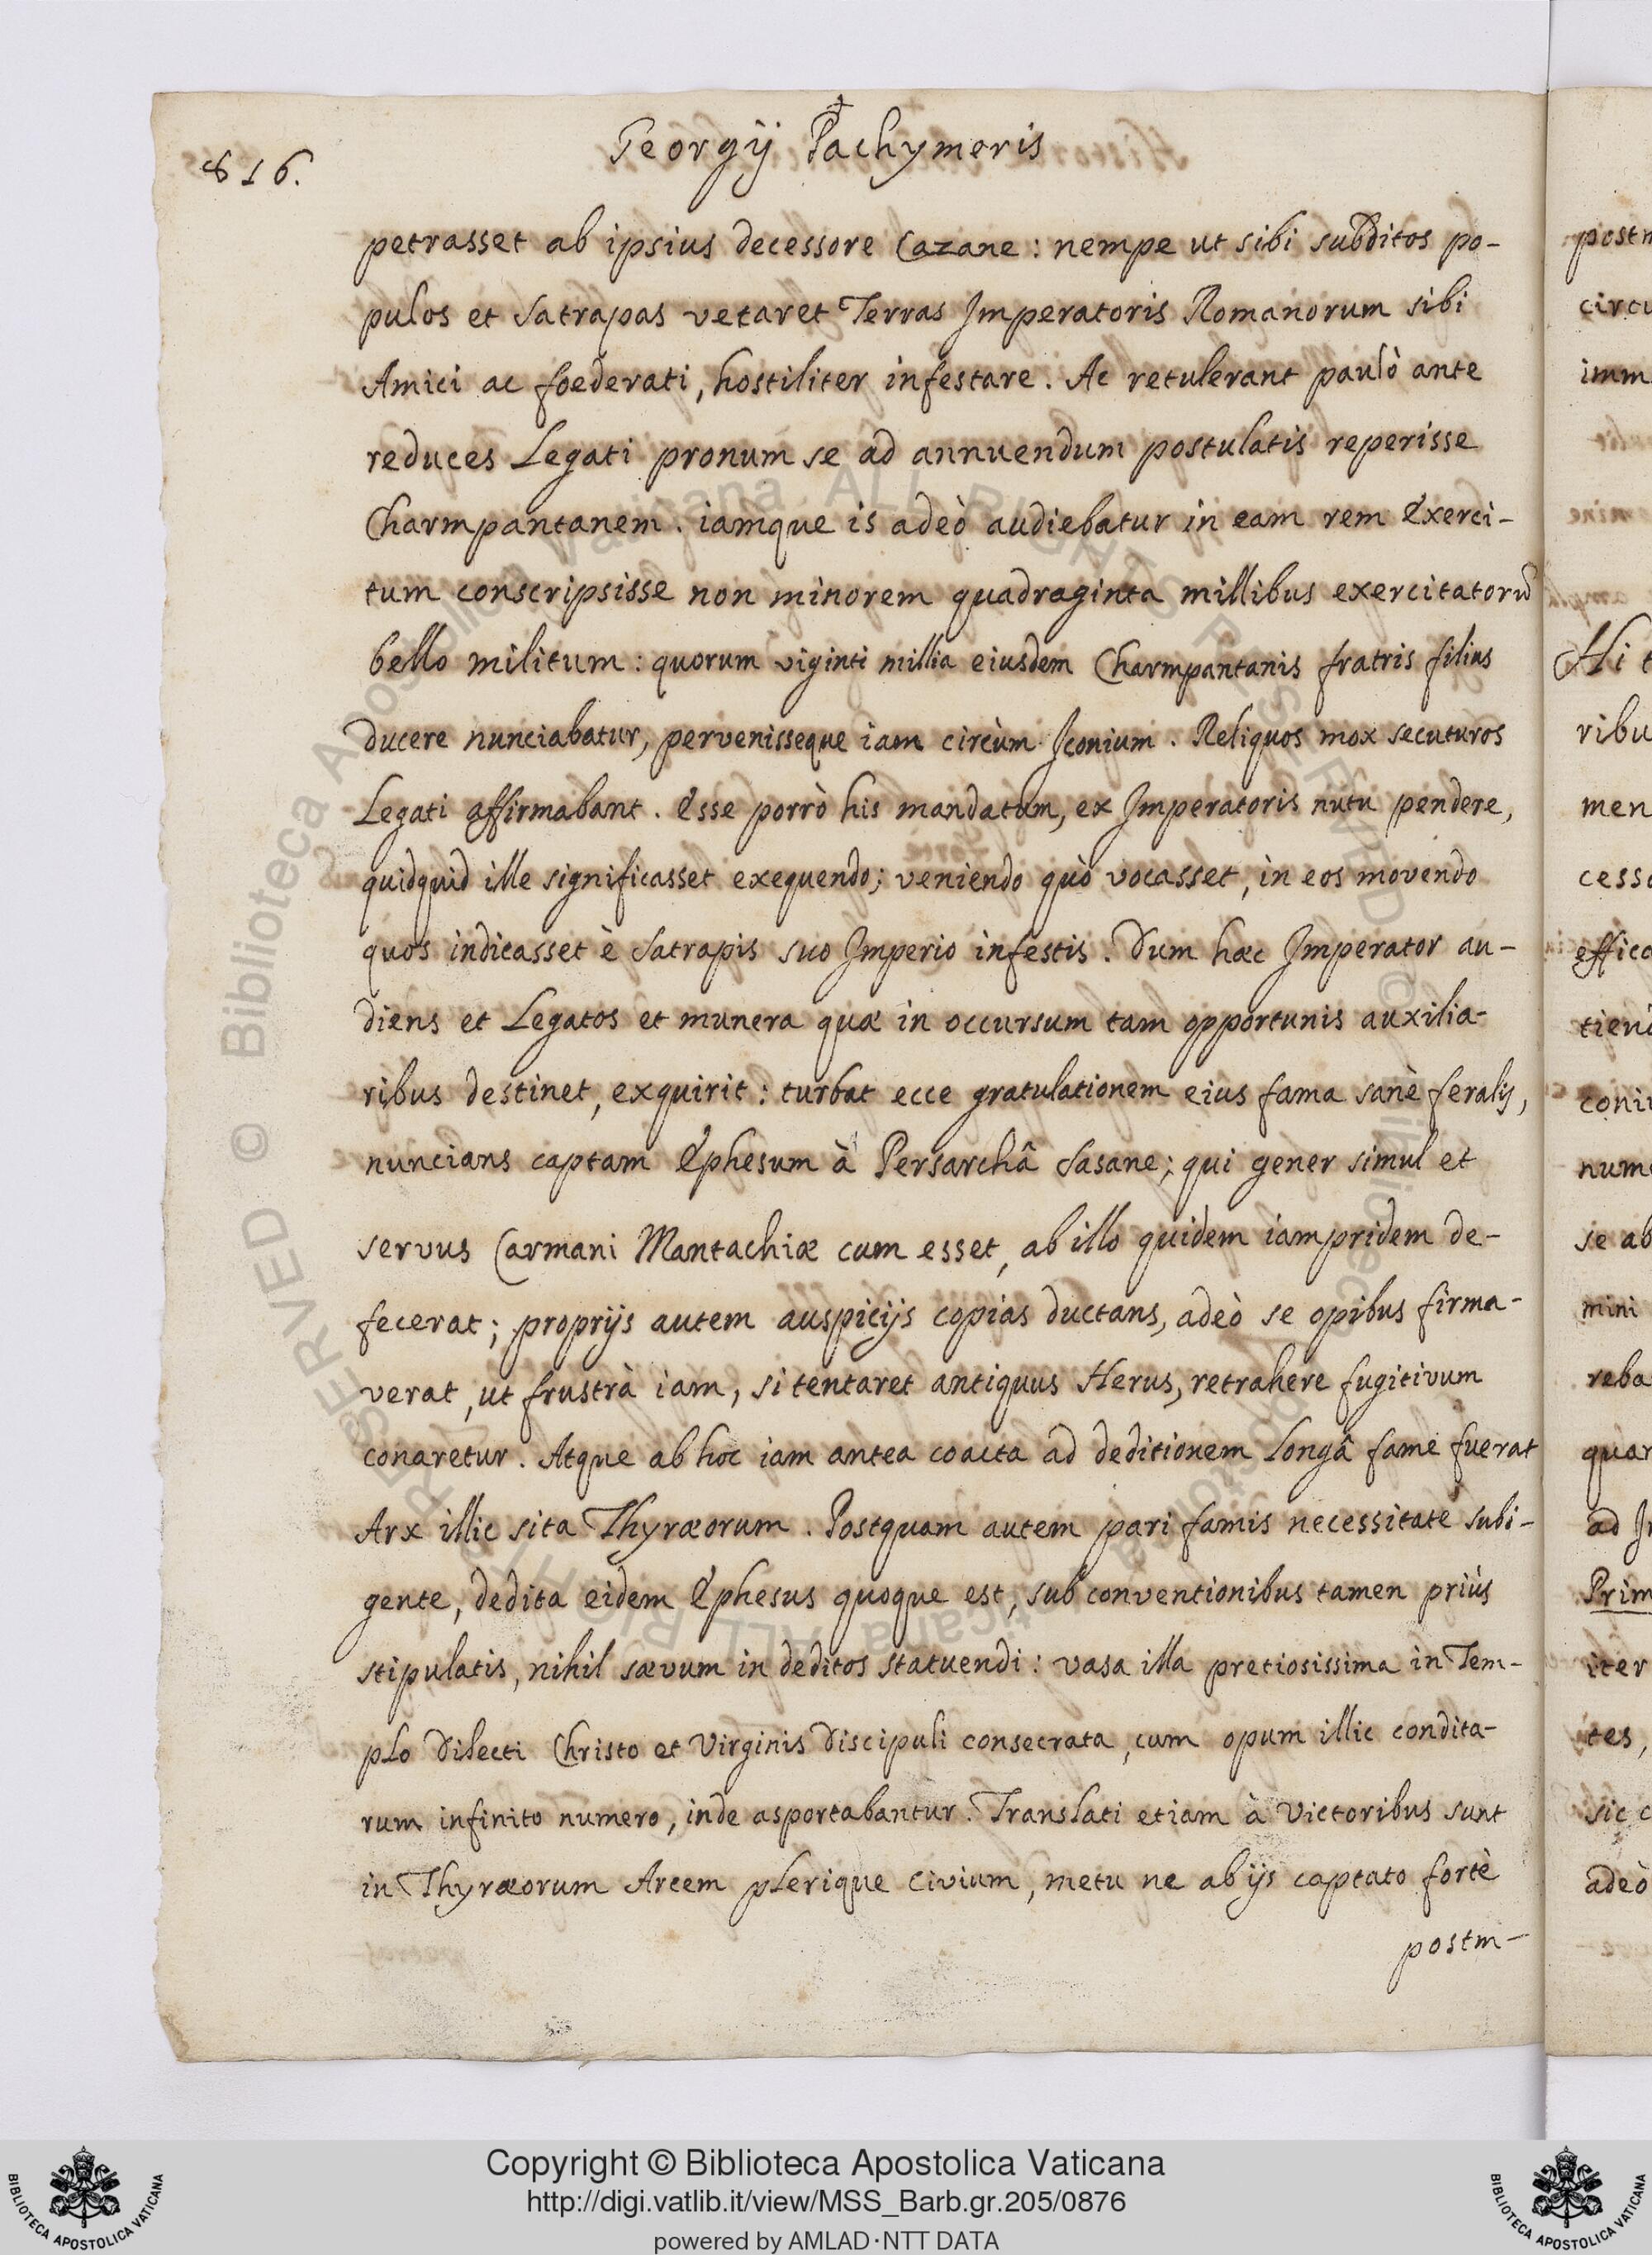 816.
Georgij Pachymeris
petrasset ab ipsius decessore Cazane: nempe ut sibi subditos po-
pulos et Satrapas vetaret Terras Imperatoris Romanorum sibi
Amici ac foederati, hostiliter infestare. Ac retulerant paulò ante
reduces Legati pronum se ad annuendum postulatis reperisse
Charmpantanem. iamque is adeò audiebatur in eam rem Exerci-
tum conscripsisse non minorem quadraginta millibus exercitatorũ
bello militum: quorum viginti millia eiusdem Charmpantanis fratris filius
ducere nunciabatur, pervenisseque iam circùm Iconium. Reliquos mox secuturos
Legati affirmabant. Esse porrò his mandatum, ex Imperatoris nutu pendere,
quidquid ille significasset exequendo; veniendo quò vocasset, in eos movendo
quos indicasset è Satrapis suo Imperio infestis. Dum hæc Imperator au-
diens et Legatos et munera quæ in occursum tam opportunis auxilia-
ribus destinet, exquirit: turbat ecce gratulationem eius fama sanè feralis,
nuncians captam Ephesum à Persarchâ Sasane; qui gener simul et
servus Carmani Mantachiæ cum esset, ab illo quidem iampridem de-
fecerat; proprijs autem auspicijs copias ductans, adeò se opibus firma-
verat, ut frustrà iam, si tentaret antiquus Herus, retrahere fugitivum
conaretur. Atque ab hoc iam antea coacta ad deditionem longâ fame fuerat
Arx illic sita Thyræorum. Postquam autem pari famis necessitate subi-
gente, dedita eidem Ephesus quoque est, sub conventionibus tamen priùs
stipulatis, nihil sævum in deditos statuendi: vasa illa pretiosissima in Tem-
plo Dilecti Christo et Virginis Discipuli consecrata, cum opum illic condita-
rum infinito numero, inde asportabantur. Translati etiam à Victoribus sunt
in Thyræorum Arcem plerique Civium, metu ne ab ijs captato fortè
postm-
Copyright © Biblioteca Apostolica Vaticana
http://digi.vatlib.it/view/MSS_Barb.gr.205/0876
powered by AMLAD·NTT DATA
BIBLIOTECA APOSTOLICA VATICANA
BIBLIOTECA APOSTOLICA VATICANA